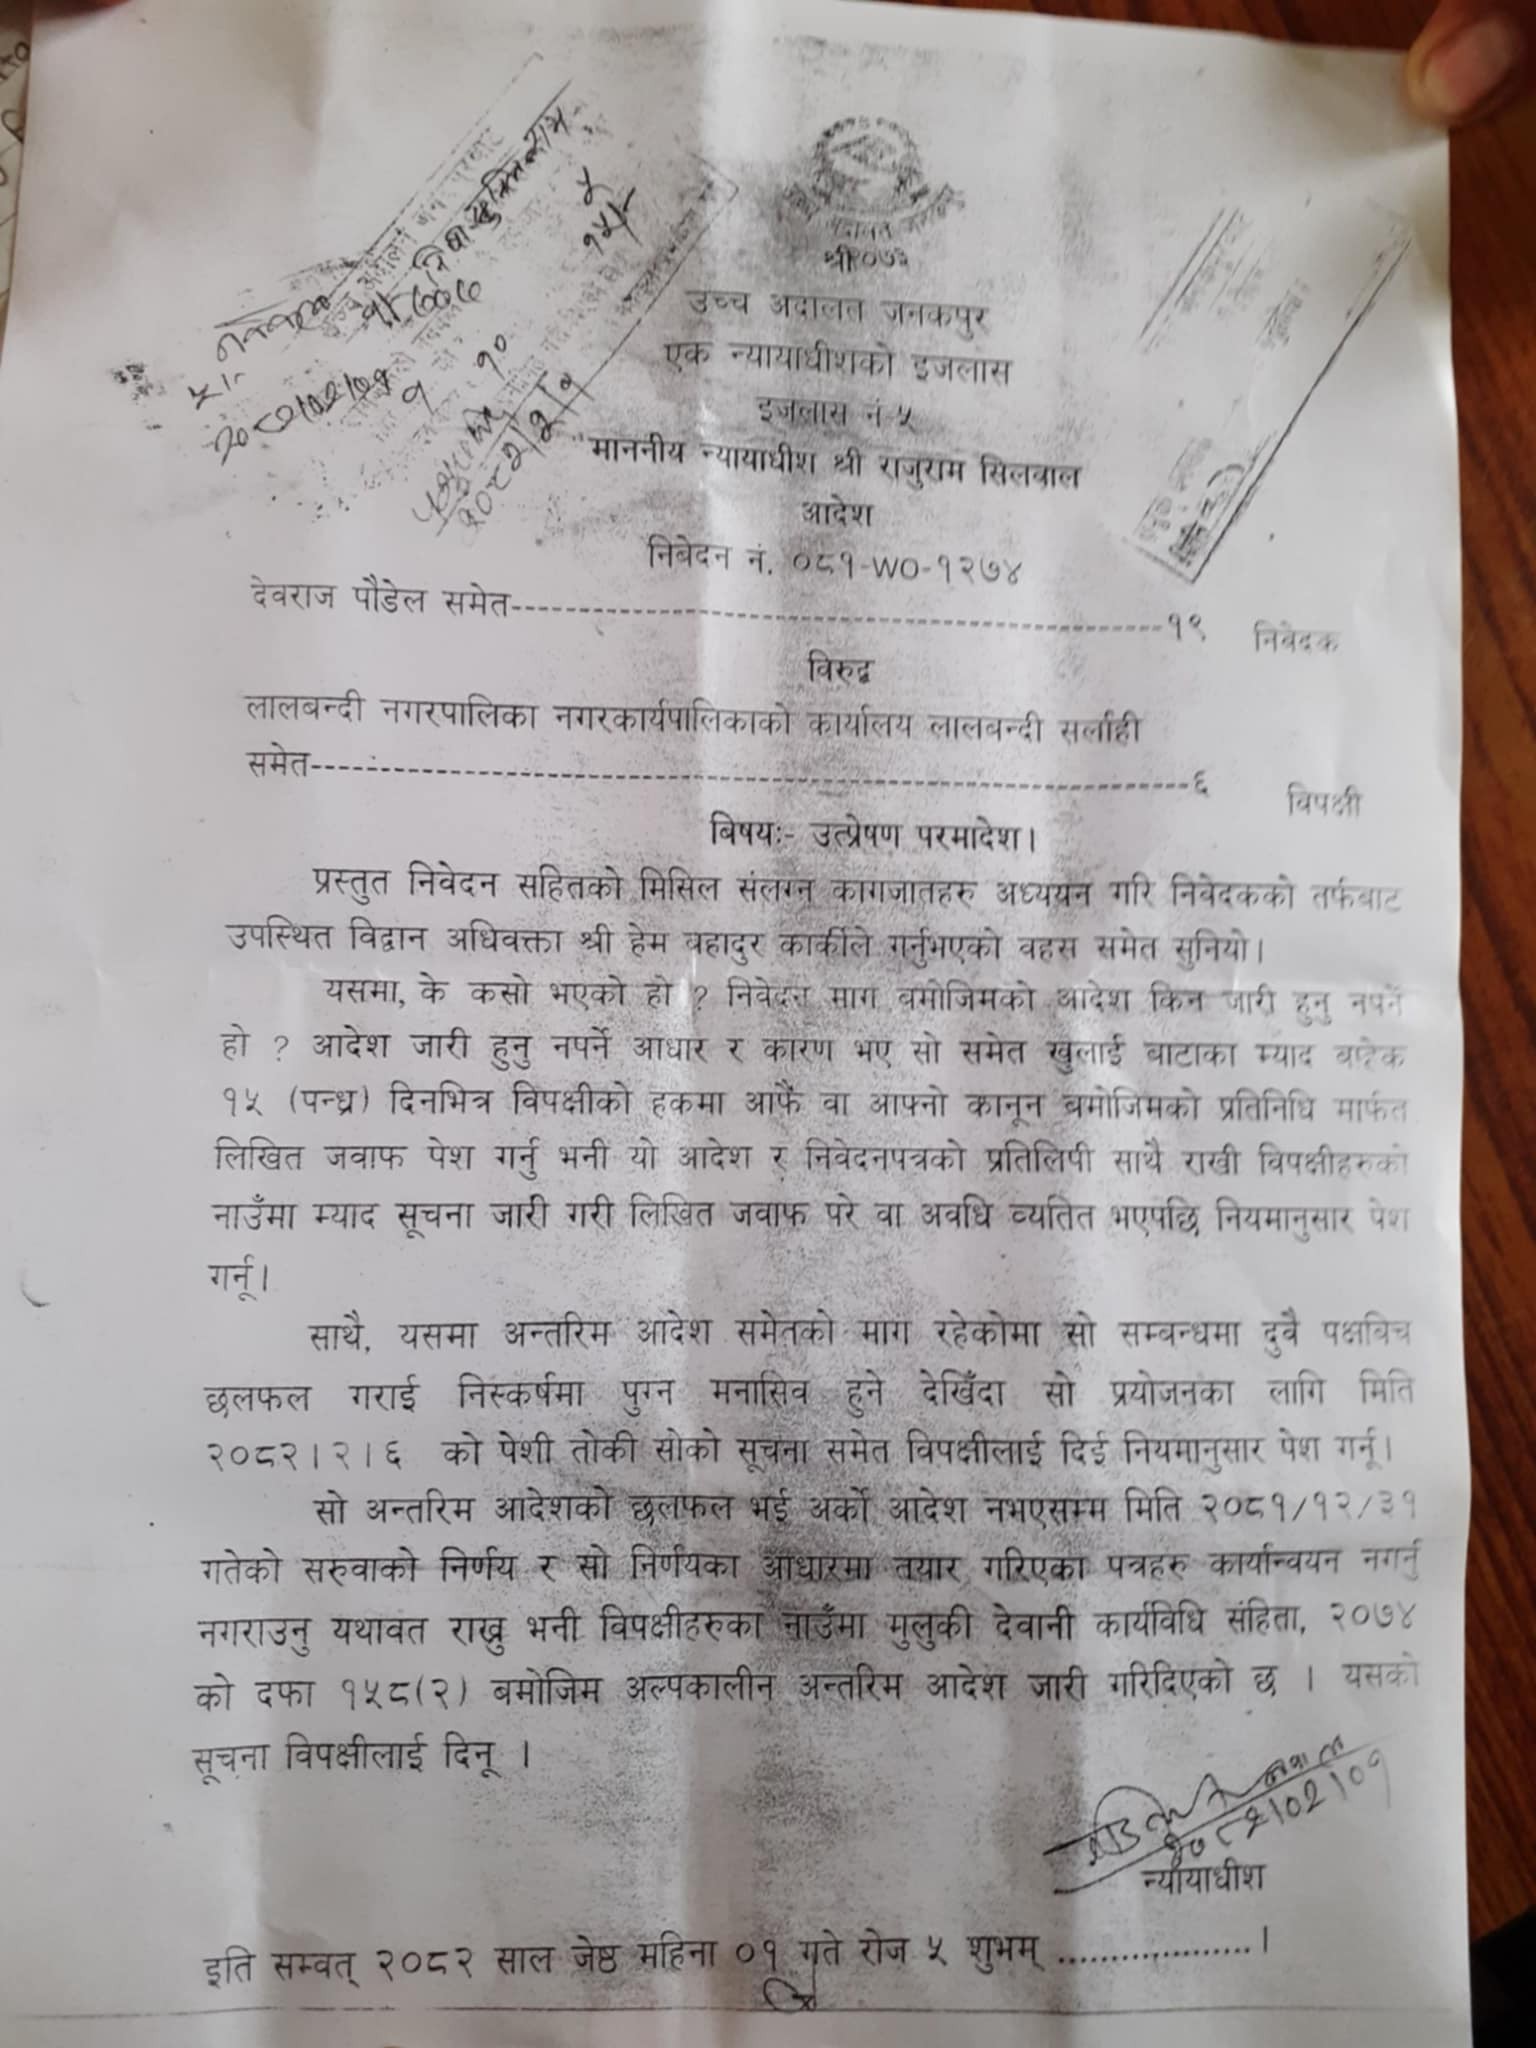 श्री
उच्च अदालत जनकपुर
एक न्यायाधीशको इजलास
इजलास नं ५
माननीय न्यायाधीश श्री राजुराम सिलवाल
आदेश
निबेदन नं. ०८१-WO-१२७४
देवराज पौडेल समेत------------------------------------------------------१९ निबेदक
विरुद्ध
लालबन्दी नगरपालिका नगरकार्यपालिकाको कार्यालय लालबन्दी सर्लाही
समेत------------------------------------------------------------------६ विपक्षी
बिषयः- उत्प्रेषण परमादेश।
प्रस्तुत निवेदन सहितको मिसिल संलग्न कागजातहरु अध्ययन गरि निबेदकको तर्फबाट
उपस्थित विद्वान अधिवक्ता श्री हेम वहादुर कार्कीले गर्नुभएको वहस समेत सुनियो।
यसमा, के कसो भएको हो ? निवेदन माग बमोजिमको आदेश किन जारी हुनु नपर्ने
हो ? आदेश जारी हुनु नपर्ने आधार र कारण भए सो समेत खुलाई बाटाका म्याद बाहेक
१५ (पन्ध्र) दिनभित्र विपक्षीको हकमा आफैं वा आफ्नो कानून बमोजिमको प्रतिनिधि मार्फत
लिखित जवाफ पेश गर्नु भनी यो आदेश र निवेदनपत्रको प्रतिलिपी साथै राखी विपक्षीहरुको
नाउँमा म्याद सूचना जारी गरी लिखित जवाफ परे वा अवधि व्यतित भएपछि नियमानुसार पेश
गर्नू।
साथै, यसमा अन्तरिम आदेश समेतको माग रहेकोमा सो सम्बन्धमा दुवै पक्षबिच
छलफल गराई निस्कर्षमा पुग्न मनासिव हुने देखिँदा सो प्रयोजनका लागि मिति
२०८२।२।६ को पेशी तोकी सोको सूचना समेत विपक्षीलाई दिई नियमानुसार पेश गर्नू।
सो अन्तरिम आदेशको छलफल भई अर्को आदेश नभएसम्म मिति २०८१/१२/३१
गतेको सरुवाको निर्णय र सो निर्णयका आधारमा तयार गरिएका पत्रहरु कार्यान्वयन नगर्नु
नगराउनु यथावत राख्नु भनी विपक्षीहरुका नाउँमा मुलुकी देवानी कार्यविधि संहिता, २०७४
को दफा १५८(२) बमोजिम अल्पकालीन अन्तरिम आदेश जारी गरिदिएको छ । यसको
सूचना विपक्षीलाई दिनू ।
२०८२।०२।०१
न्यायाधीश
इति सम्वत् २०८२ साल जेष्ठ महिना ०१ गते रोज ५ शुभम् ...................।